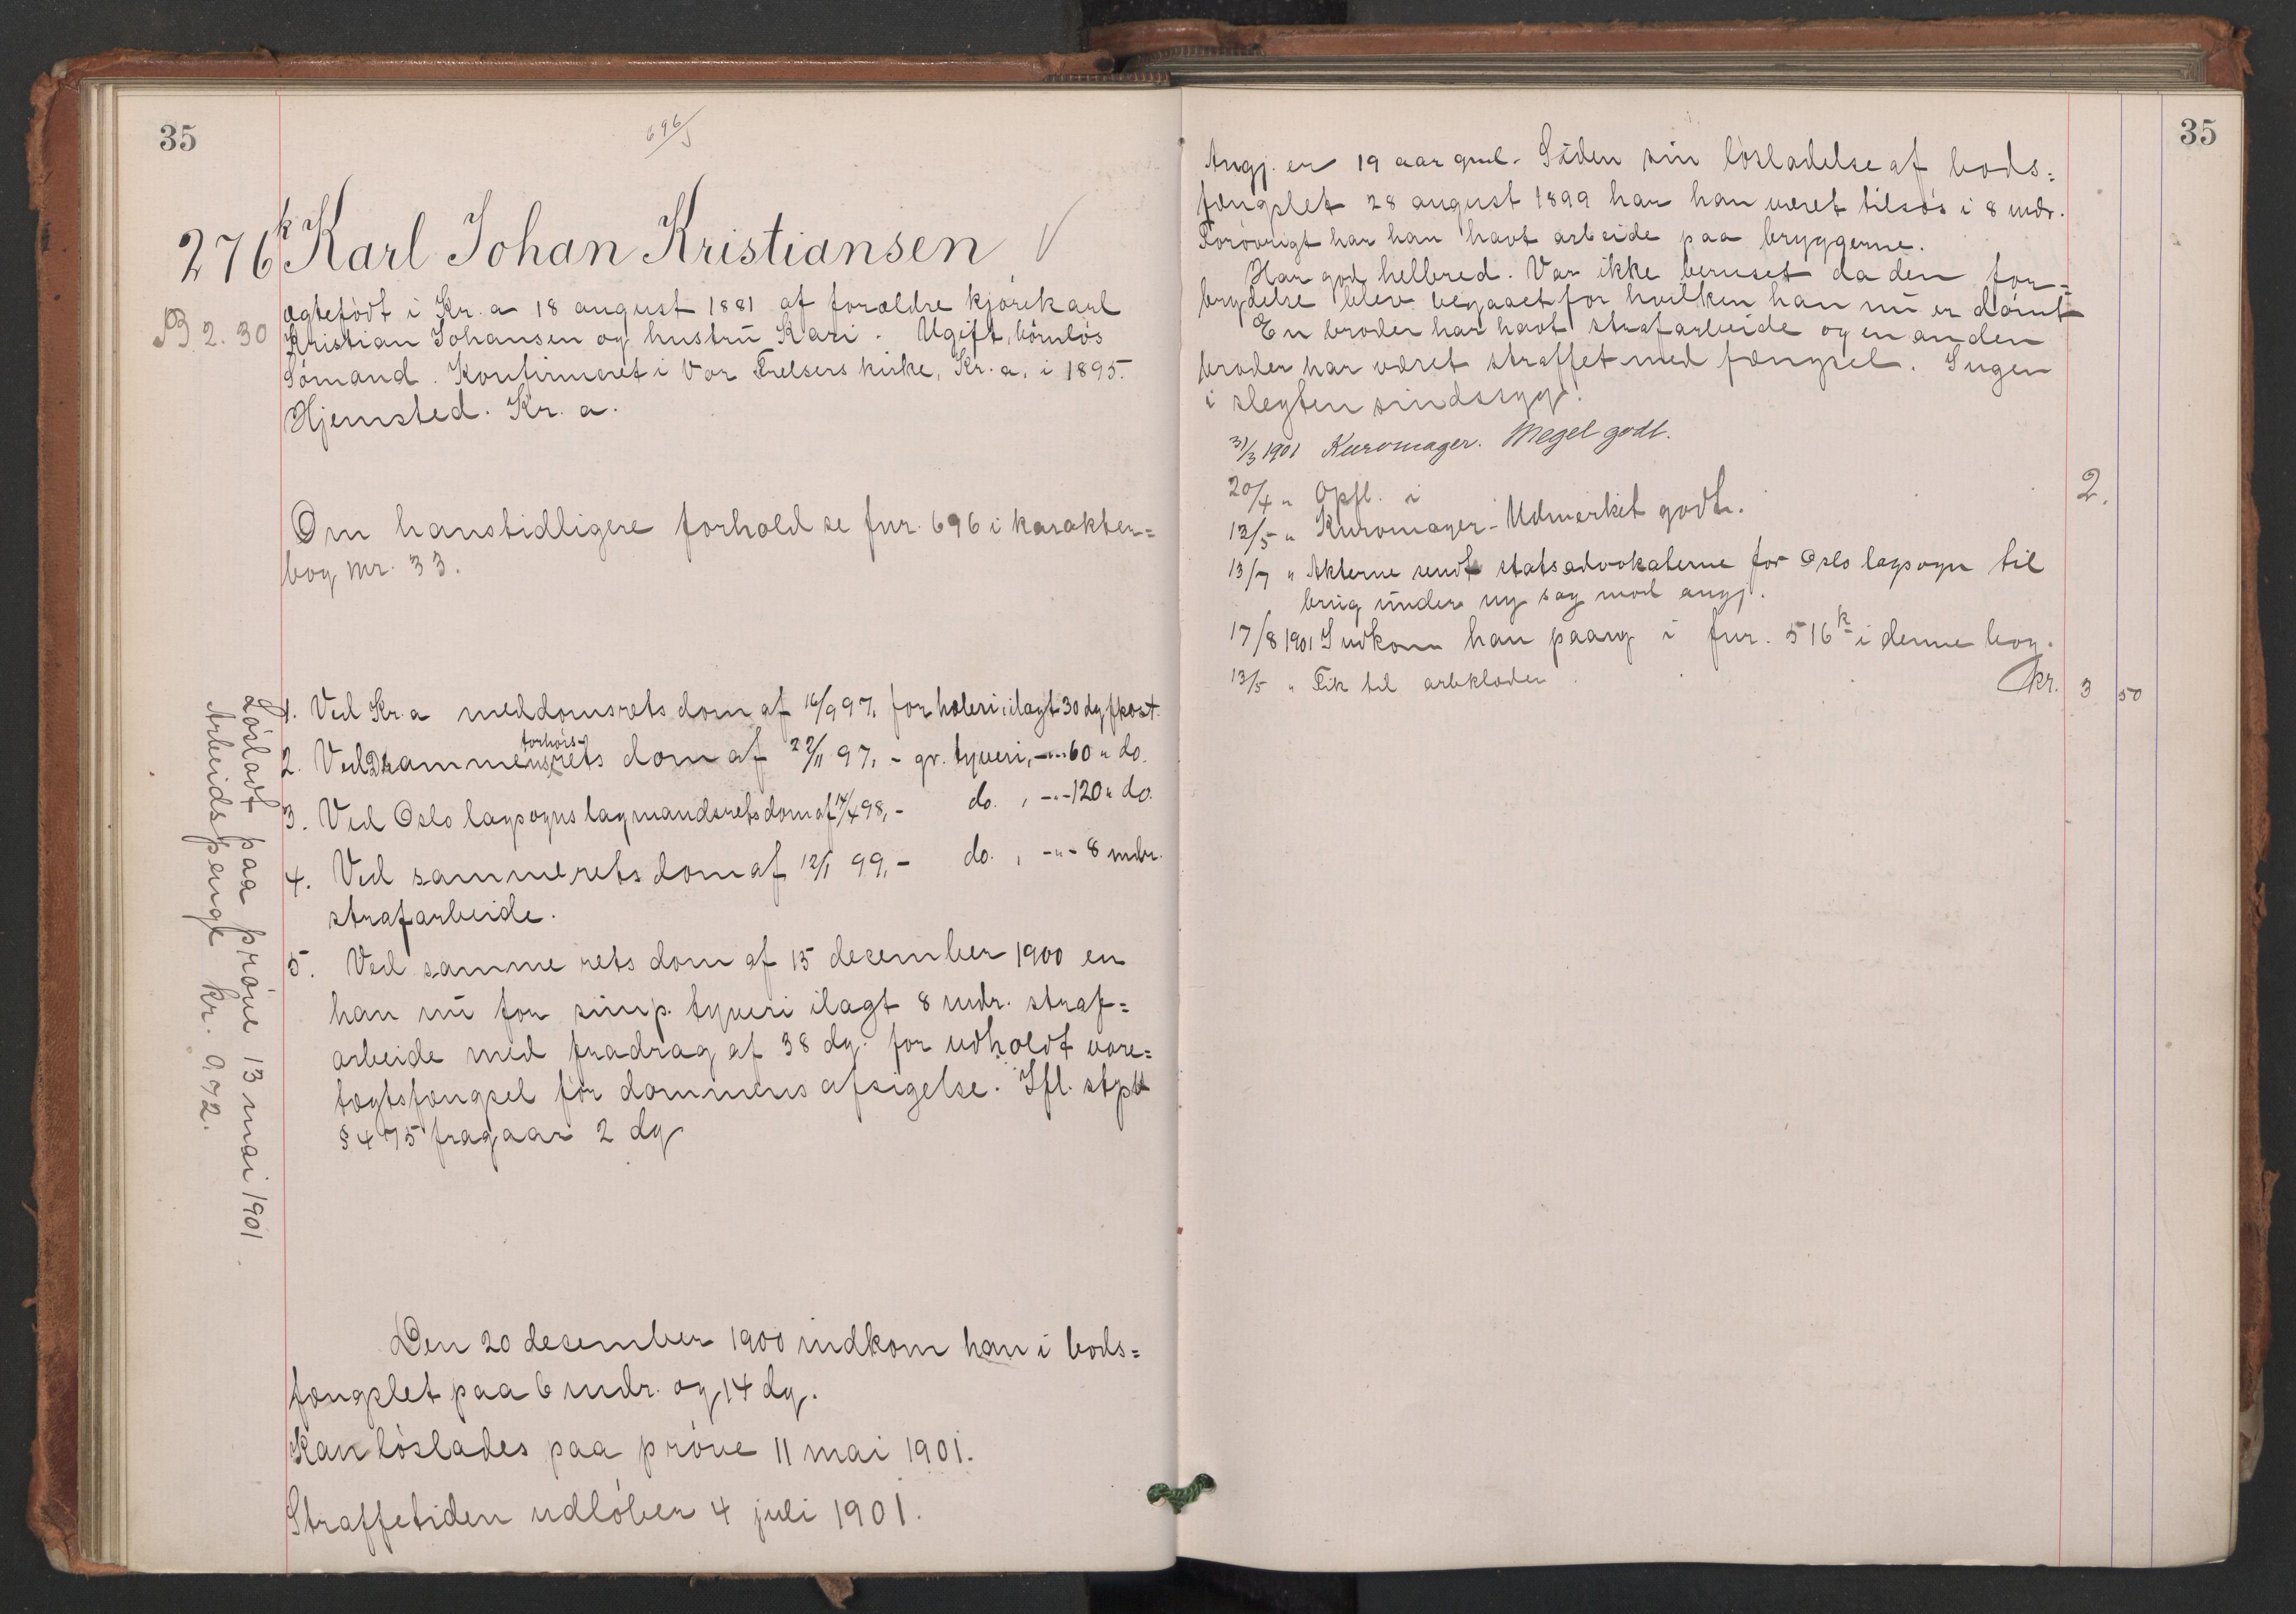 35
696/J
276k Karl Johan Kristiansen
ægtefödt i Kr.a 18 august 1881 af forældre kjörekarl
B 2.30
Kristian Johansen og hustru Kari. Ugift, börnlös
Sömand. Konfirmeret i Vor Frelsers kirke, Kr.a. i 1895.
Hjemsted. Kr.a.
Om hans tidligere forhold se fnr. 696 i karakter=
bog nr. 33.
1. Ved Kr.a meddomsrets dom af 16/9 97, for hæleri ilagt 30 dg fkost.
2. Ved Drammens forhörsrets dom af 22/11 97, - gr. tyveri, -"- 60 " do.
3. Ved Oslo lagsogns lagmandsrets dom af 14/4 98, - do. , -"- 120 " do.
4. Ved samme rets dom af 12/1 99, - do. , -"- 8 mdr.
strafarbeide.
5. Ved samme rets dom af 15 december 1900 er
han nu for simp. tyveri ilagt 8 mdr. straf=
arbeide med fradrag af 38 dg. for udholdt vare=
tægtsfængsel för dommens afsigelse. Ifl. stpl
§ 475 fragaar 2 dg
Lösladt paa pröve 13 mai 1901.
Arbeidspenge kr. 9.72.
Den 20 desember 1900 indkom han i bods=
fængslet paa 6 mdr. og 14 dg.
Kan löslades paa pröve 11 mai 1901.
Straffetiden udlöber 4 juli 1901.
35
Angj. er 19 aar gml. Siden sin lösladelse af bods=
fængslet 28 august 1899 har han været tilsös i 8 mdr.
Forövrigt har han havt arbeide paa bryggerne.
Har god helbred. Var ikke beruset da den for=
brydelse blev begaaet for hvilken han nu er dömt
En broder har havt strafarbeide og en anden
broder har været straffet med fængsel. Ingen
i slegten sindssyg.
31/3 1901 Kurvmager. Meget godt.
20/4 " Opfl. i 2.
12/5 " Kurvmager - Udmerket godt.
13/7 " Akterne sendt statsadvokaterne for Oslo lagsogn til
brug under ny sag mod angj.
17/8 1901 Indkom han paany i fnr. 516k i denne bog.
13/5 " Fik til arbklæder kr. 3 50